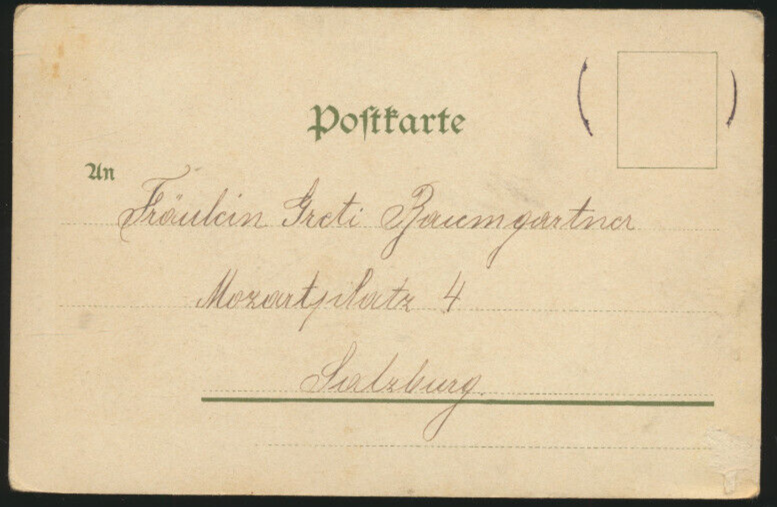 Postkarte
An
Fräulein Greti Baumgartner
Mozartplatz 4
Salzburg.